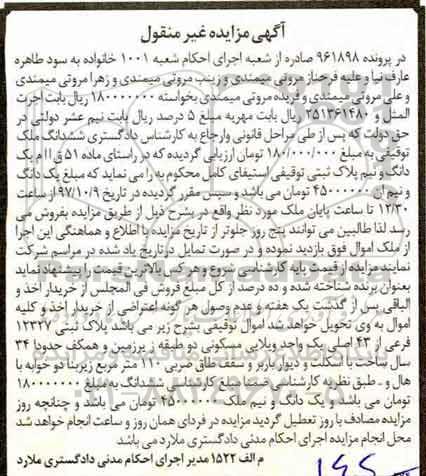 آگهی مزایده غیر منقول
در پرونده ۹۶۱۸۹۸ صادره از شعبه اجرای احکام شعبه ۱۰۰۱ خانواده به سود طاهره
عارف نیا و علیه فرحناز مروتی میمندی و زینب مروتی میمندی و زهرا مروتی میمندی
و علی مروتی میمندی و فریده مروتی میمندی بخواسته ۱۸۰۰۰۰۰۰۰ ریال بابت اجرت
المثل و ۲۵۱۳۶۱۴۸۰ ریال بابت مهریه مبلغ ۵ درصد ریال بابت نیم عشر دولتی در
حق دولت که پس از طی مراحل قانونی وارجاع به کارشناس دادگستری ششدانگ ملک
توقیفی به مبلغ ۱۸۰/۰۰۰/۰۰۰ تومان ارزیابی گردیده که در راستای ماده ۵۱ ق ا ا م یک
دانگ و نیم پلاک ثبتی توقیفی استیفای کامل محکوم به را می نماید که مبلغ یک دانگ
و نیم ان ۴۵۰۰۰۰۰۰ تومان می باشد و سپس مقرر گردیده در تاریخ ۹۷/۱۰/۹ از ساعت
۱۲/۳۰ تا ساعت پایان ملک مورد نظر واقع در بشرح ذیل از طریق مزایده بفروش می
رسد لذا طالبین می توانند پنج روز جلوتر از تاریخ مزایده با اطلاع و هماهنگی این اجرا
از ملک اموال فوق بازدید نموده و در صورت تمایل درتاریخ یاد شده در مراسم شرکت
نمایند مزایده از قیمت پایه کارشناسی شروع و هرکس بالاترین قیمت را پیشنهاد نماید
بعنوان برنده شناخته شده و ده درصد از کل مبلغ فروش فی المجلس از خریدار اخذ و
الباقی پس از گذشت یک هفته و عدم وصول هر گونه اعتراضی از خریدار اخذ و کلیه
اموال به وی تحویل خواهد شد اموال توقیفی بشرح زیر می باشد پلاک ثبتی ۱۲۳۲۷
فرعی از ۴۳ اصلی یک واحد ویلایی مسکونی دو طبقه زیرزمین و همکف حدودا ۳۴
سال ساخت با اسکلت و دیوار باربر و سقف طاق ضربی ۱۱۰ متر مربع زیربنا دو خوابه با
هال و .. طبق نظریه کارشناسی ضمنا مبلغ کارشناسی ششدانگ به مبلغ ۱۸۰۰۰۰۰۰۰
تومان می باشد و یک دانگ و نیم ملک ۴۵۰۰۰۰۰۰ تومان می باشد و چنانچه روز
مزایده مصادف با روز تعطیل گردید مزایده در فردای همان روز و ساعت انجام خواهد شد
محل انجام مزایده اجرای احکام مدنی دادگستری ملارد می باشد
م الف ۱۵۲۲ مدیر اجرای احکام مدنی دادگستری ملارد